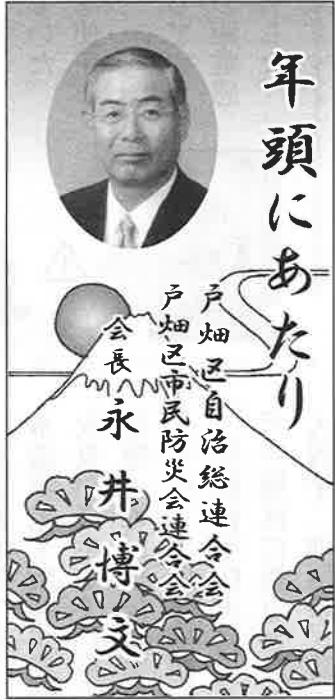 年頭にあたり
戸畑区自治総連合会
戸畑区市民防災会連合会
会長 永井博文